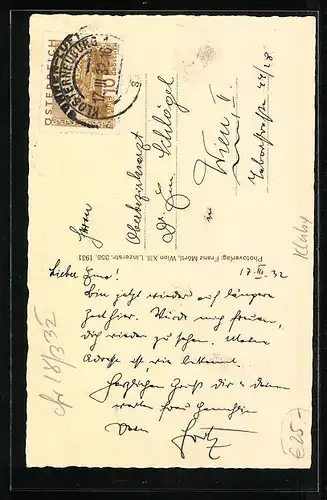 ÖSTERREICH
KLOSTERNEUBURG
10
Herrn
Oberbezirksarzt
Dr. Em. Schlögel
in Wien II.
Taborstrasse 27/28
Photoverlag: Franz Mörtl, Wien XIII, Linzerstr. 358. 1931
17.III.32
Lieber Emo!
Bin jetzt wieder auf längere
Zeit hier. Würde mich freuen,
dich wieder zu sehen. Meine
Adresse ist, wie bekannt.
Herzlichen Gruß dir u. deiner
werten Frau Gemahlin
von Fritz
18/3 32
€25.-